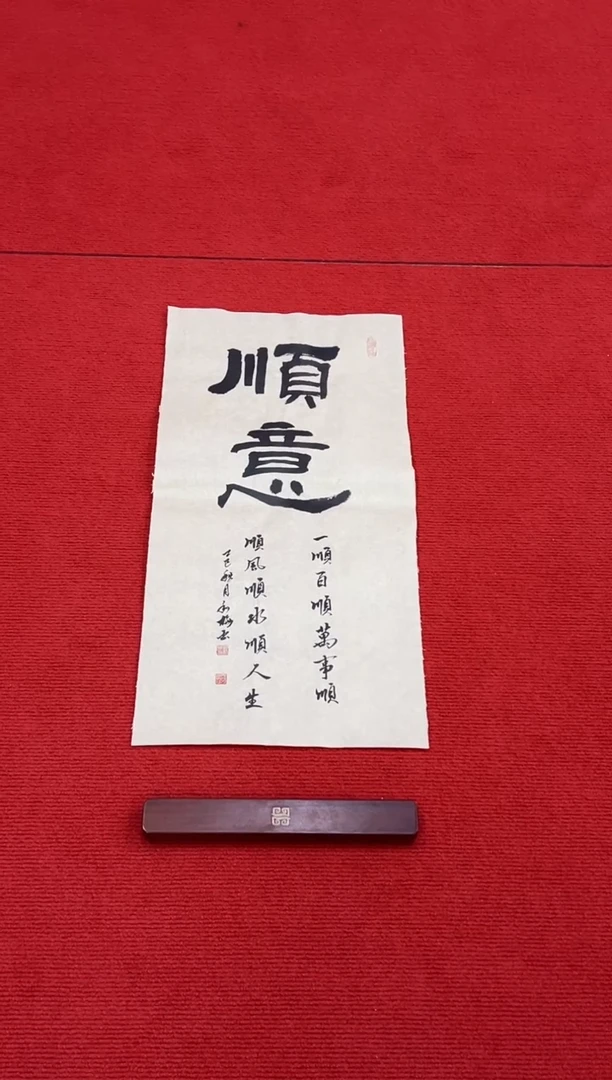 順意
一順百順萬事順
順風順水順人生